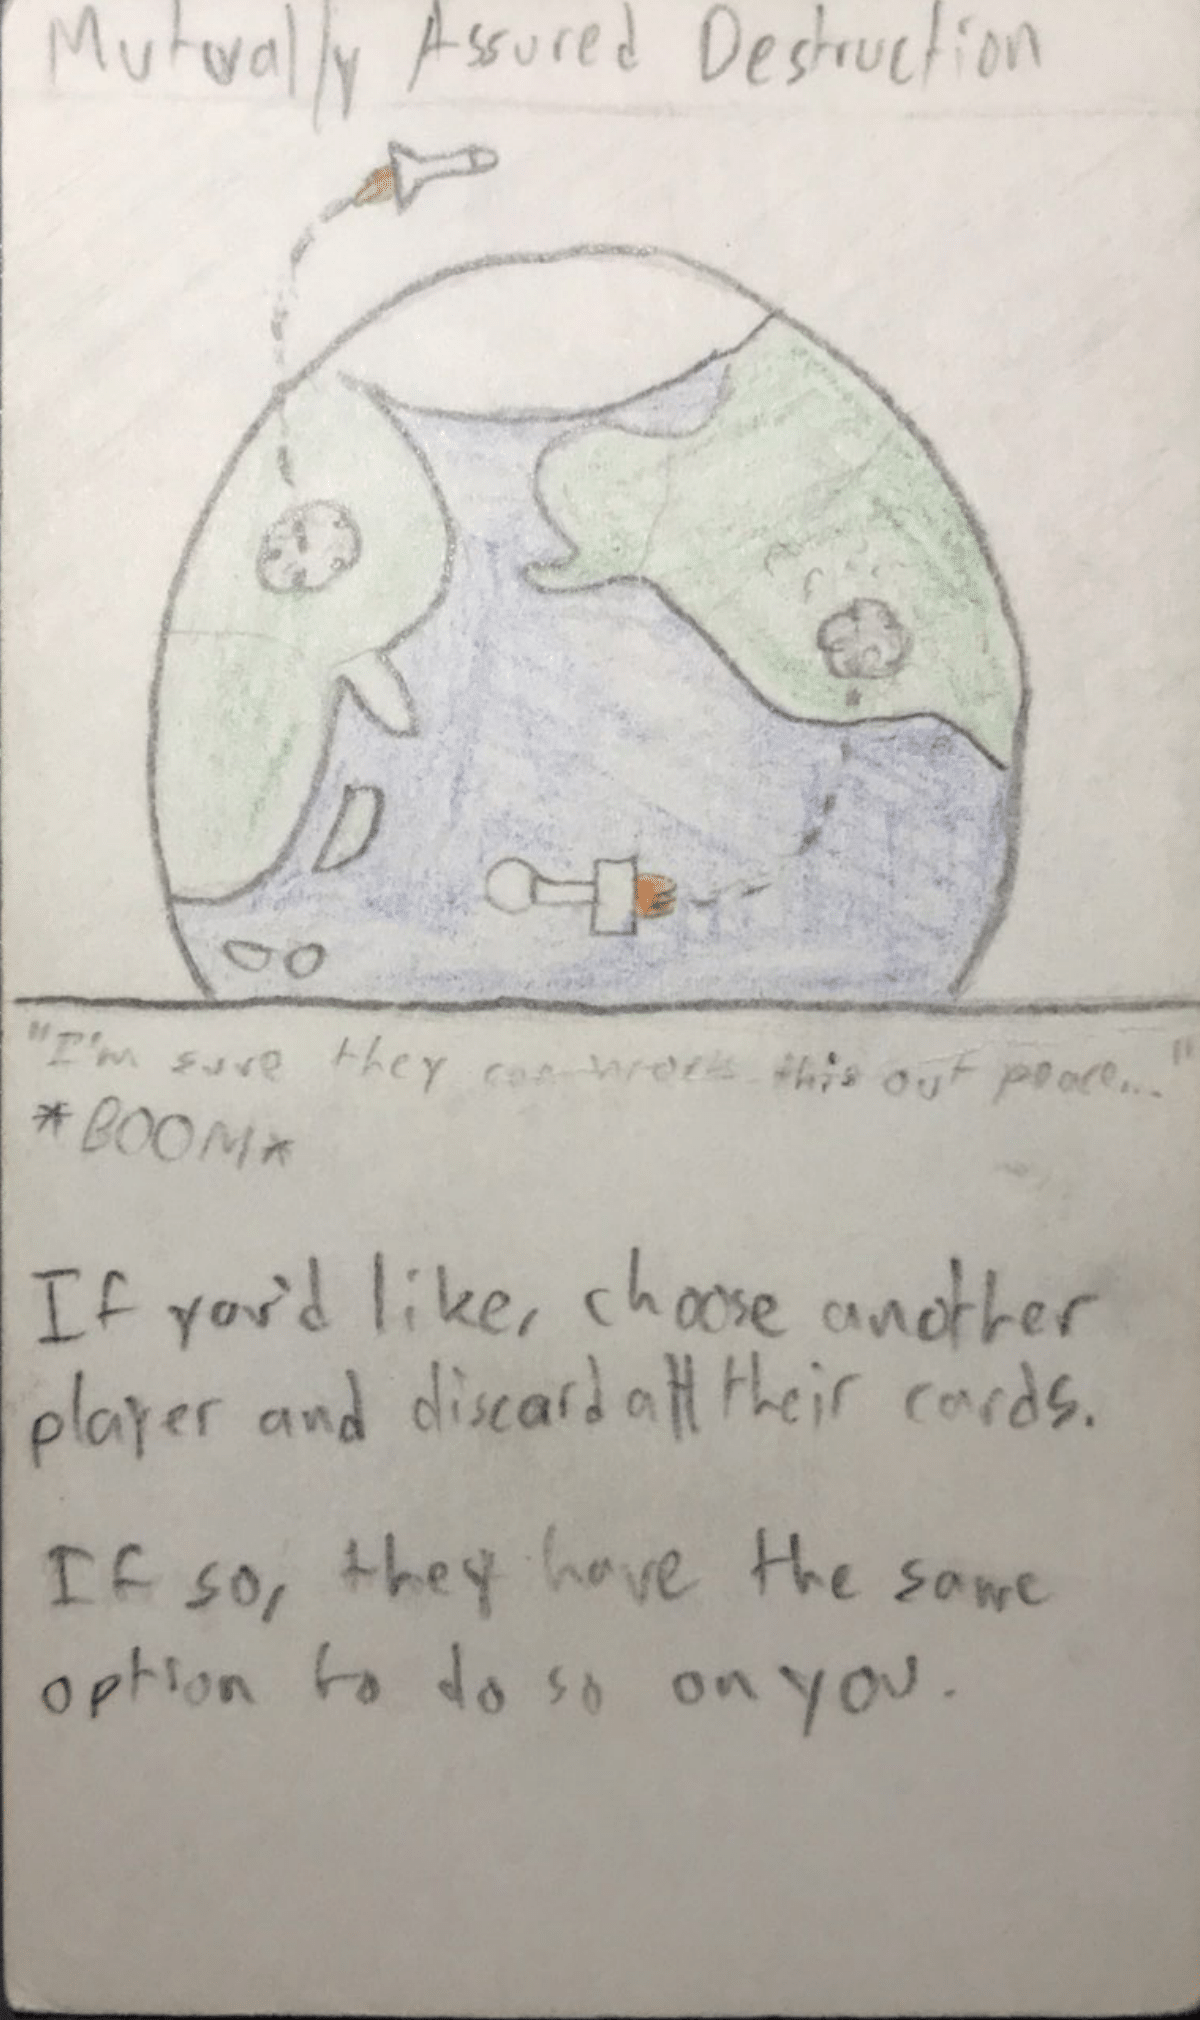 Mutually Assured Destruction
"I'm sure they can work this out peace..."
*BOOM*
If you'd like, choose another
player and discard all their cards.
If so, they have the same
option to do so on you.